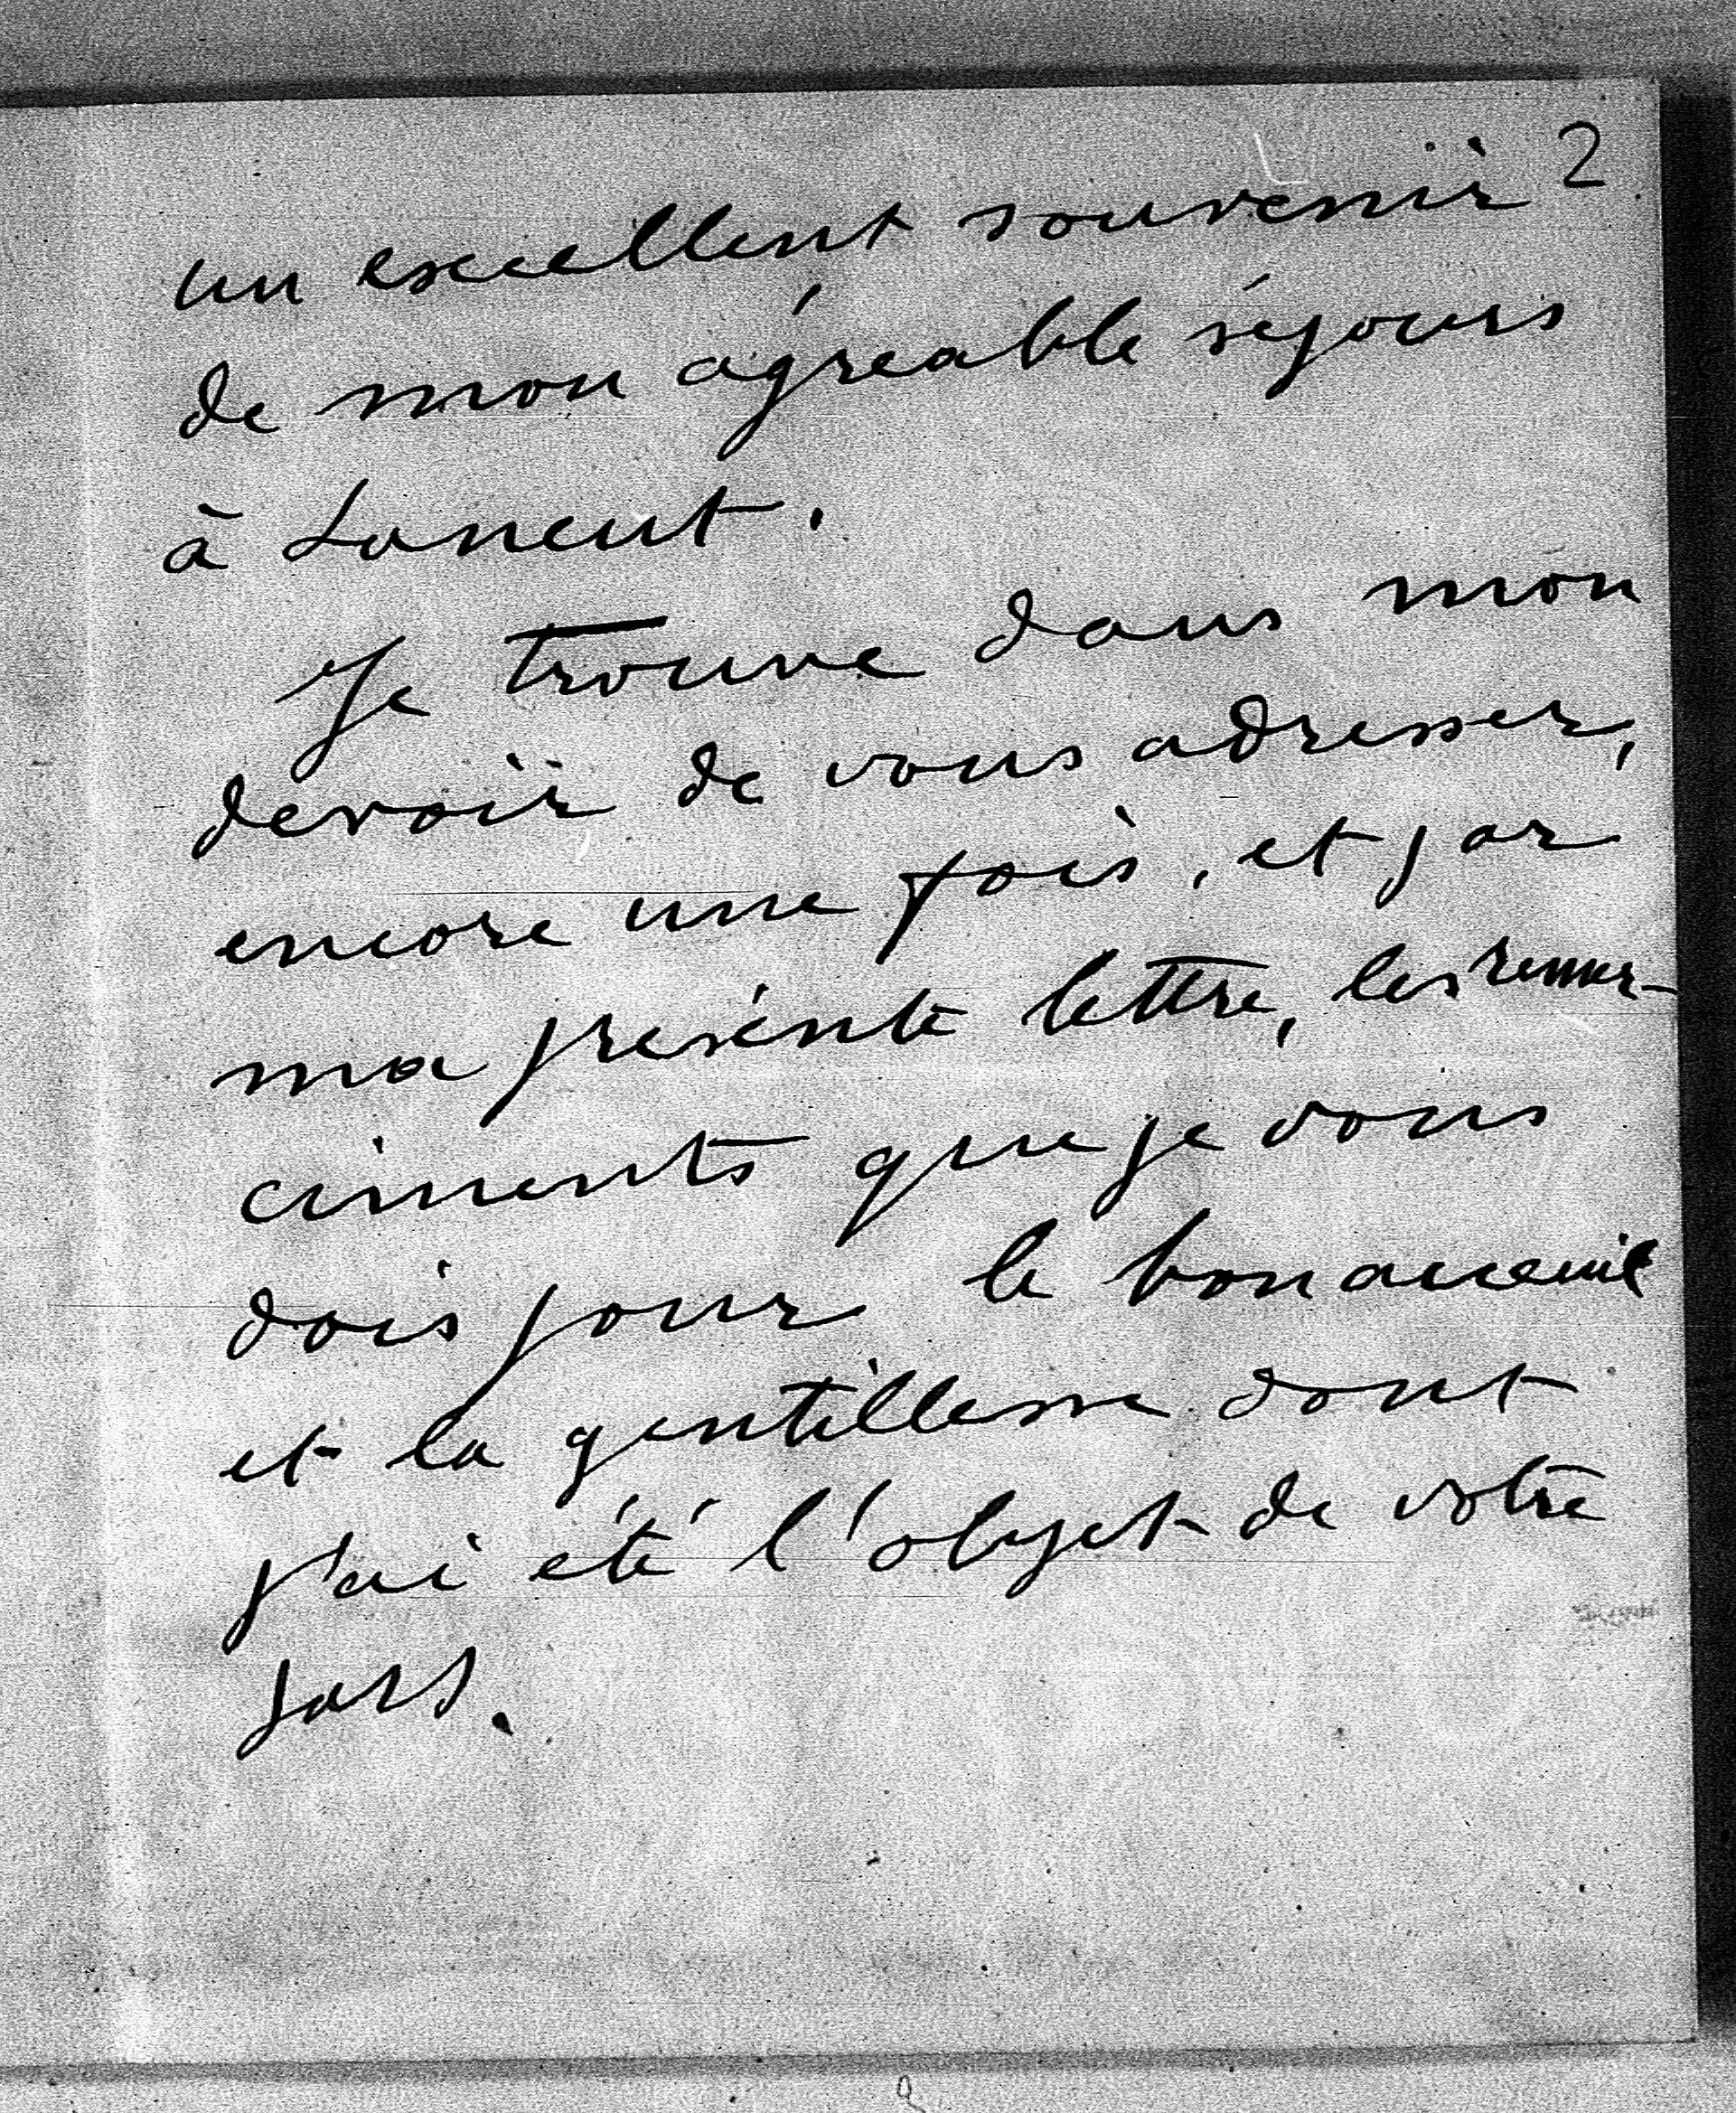 2
un excellent souvenir
de mon agréable séjours
à
Je trouve dans mon
devoir de vous adresser,
encore une fois, et par
ma présente lettre, les remer-
ciments que je vous
dois pour le bon acceuil
et la gentillesse dont
j'ai été l'objet de votre
part.